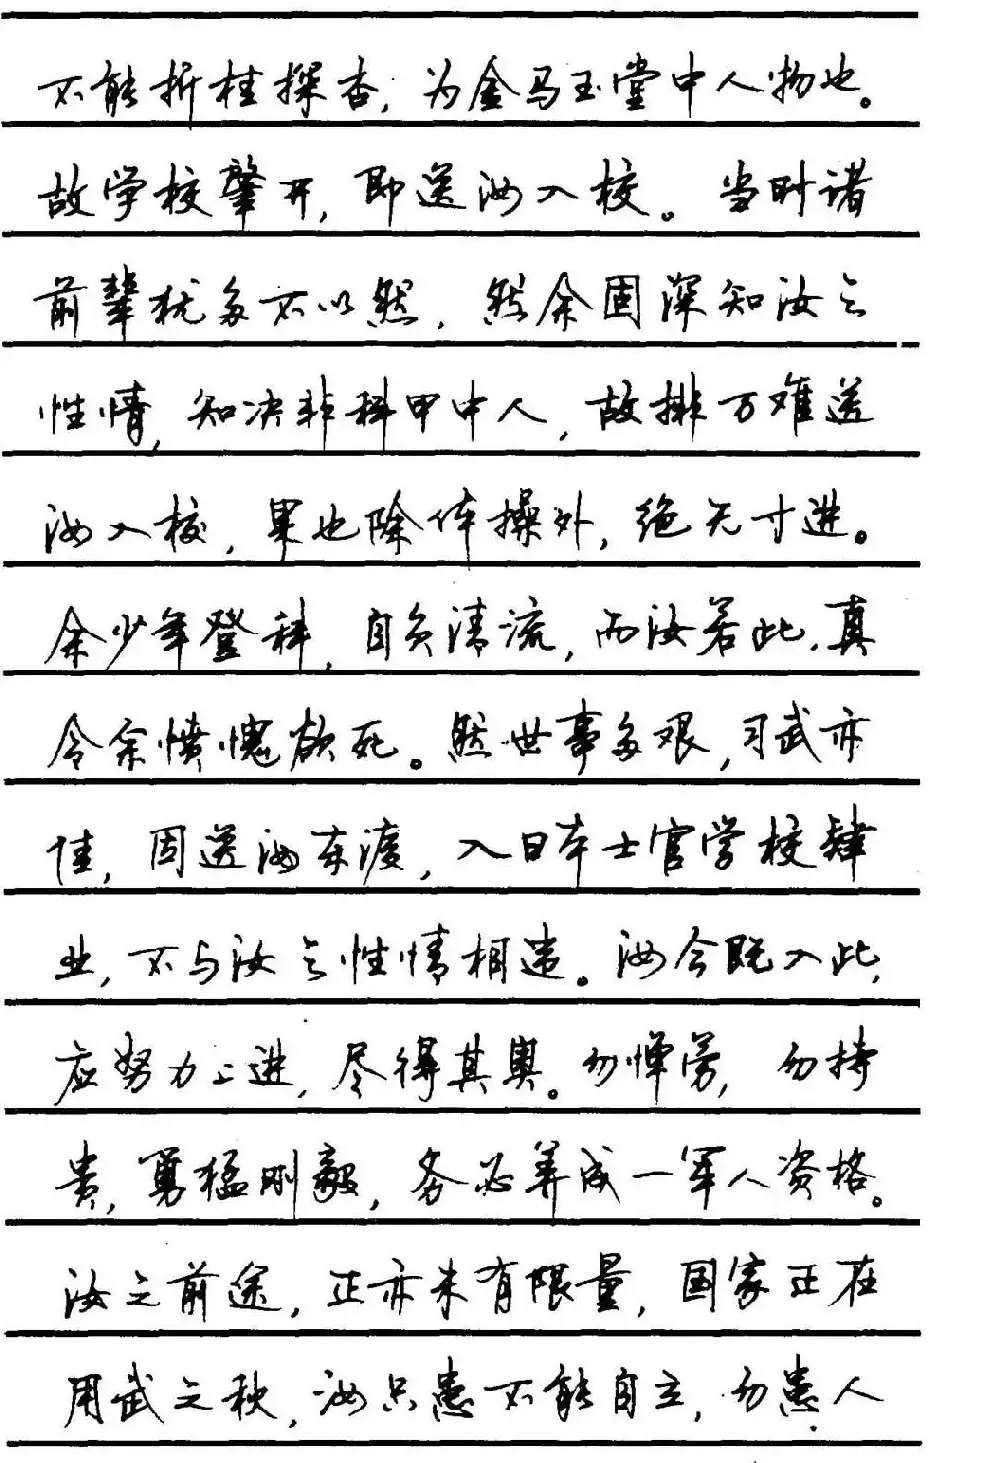 不能折桂探杏，为金马玉堂中人物也。
故学校肇开，即送汝入校。当时诸
前辈犹多不以然，然余固深知汝之
性情，知决非科甲中人，故排万难送
汝入校，果也除体操外，绝无寸进。
余少年登科，自负清流，而汝若此，真
令余愤愧欲死。然世事多艰，习武亦
佳，因送汝东渡，入日本士官学校肄
业，不与汝之性情相违。汝今既入此，
应努力上进，尽得其奥。勿惮劳，勿持
贵，勇猛刚毅，务必养成一军人资格。
汝之前途，正亦未有限量，国家正在
用武之秋，汝只患不能自立，勿患人